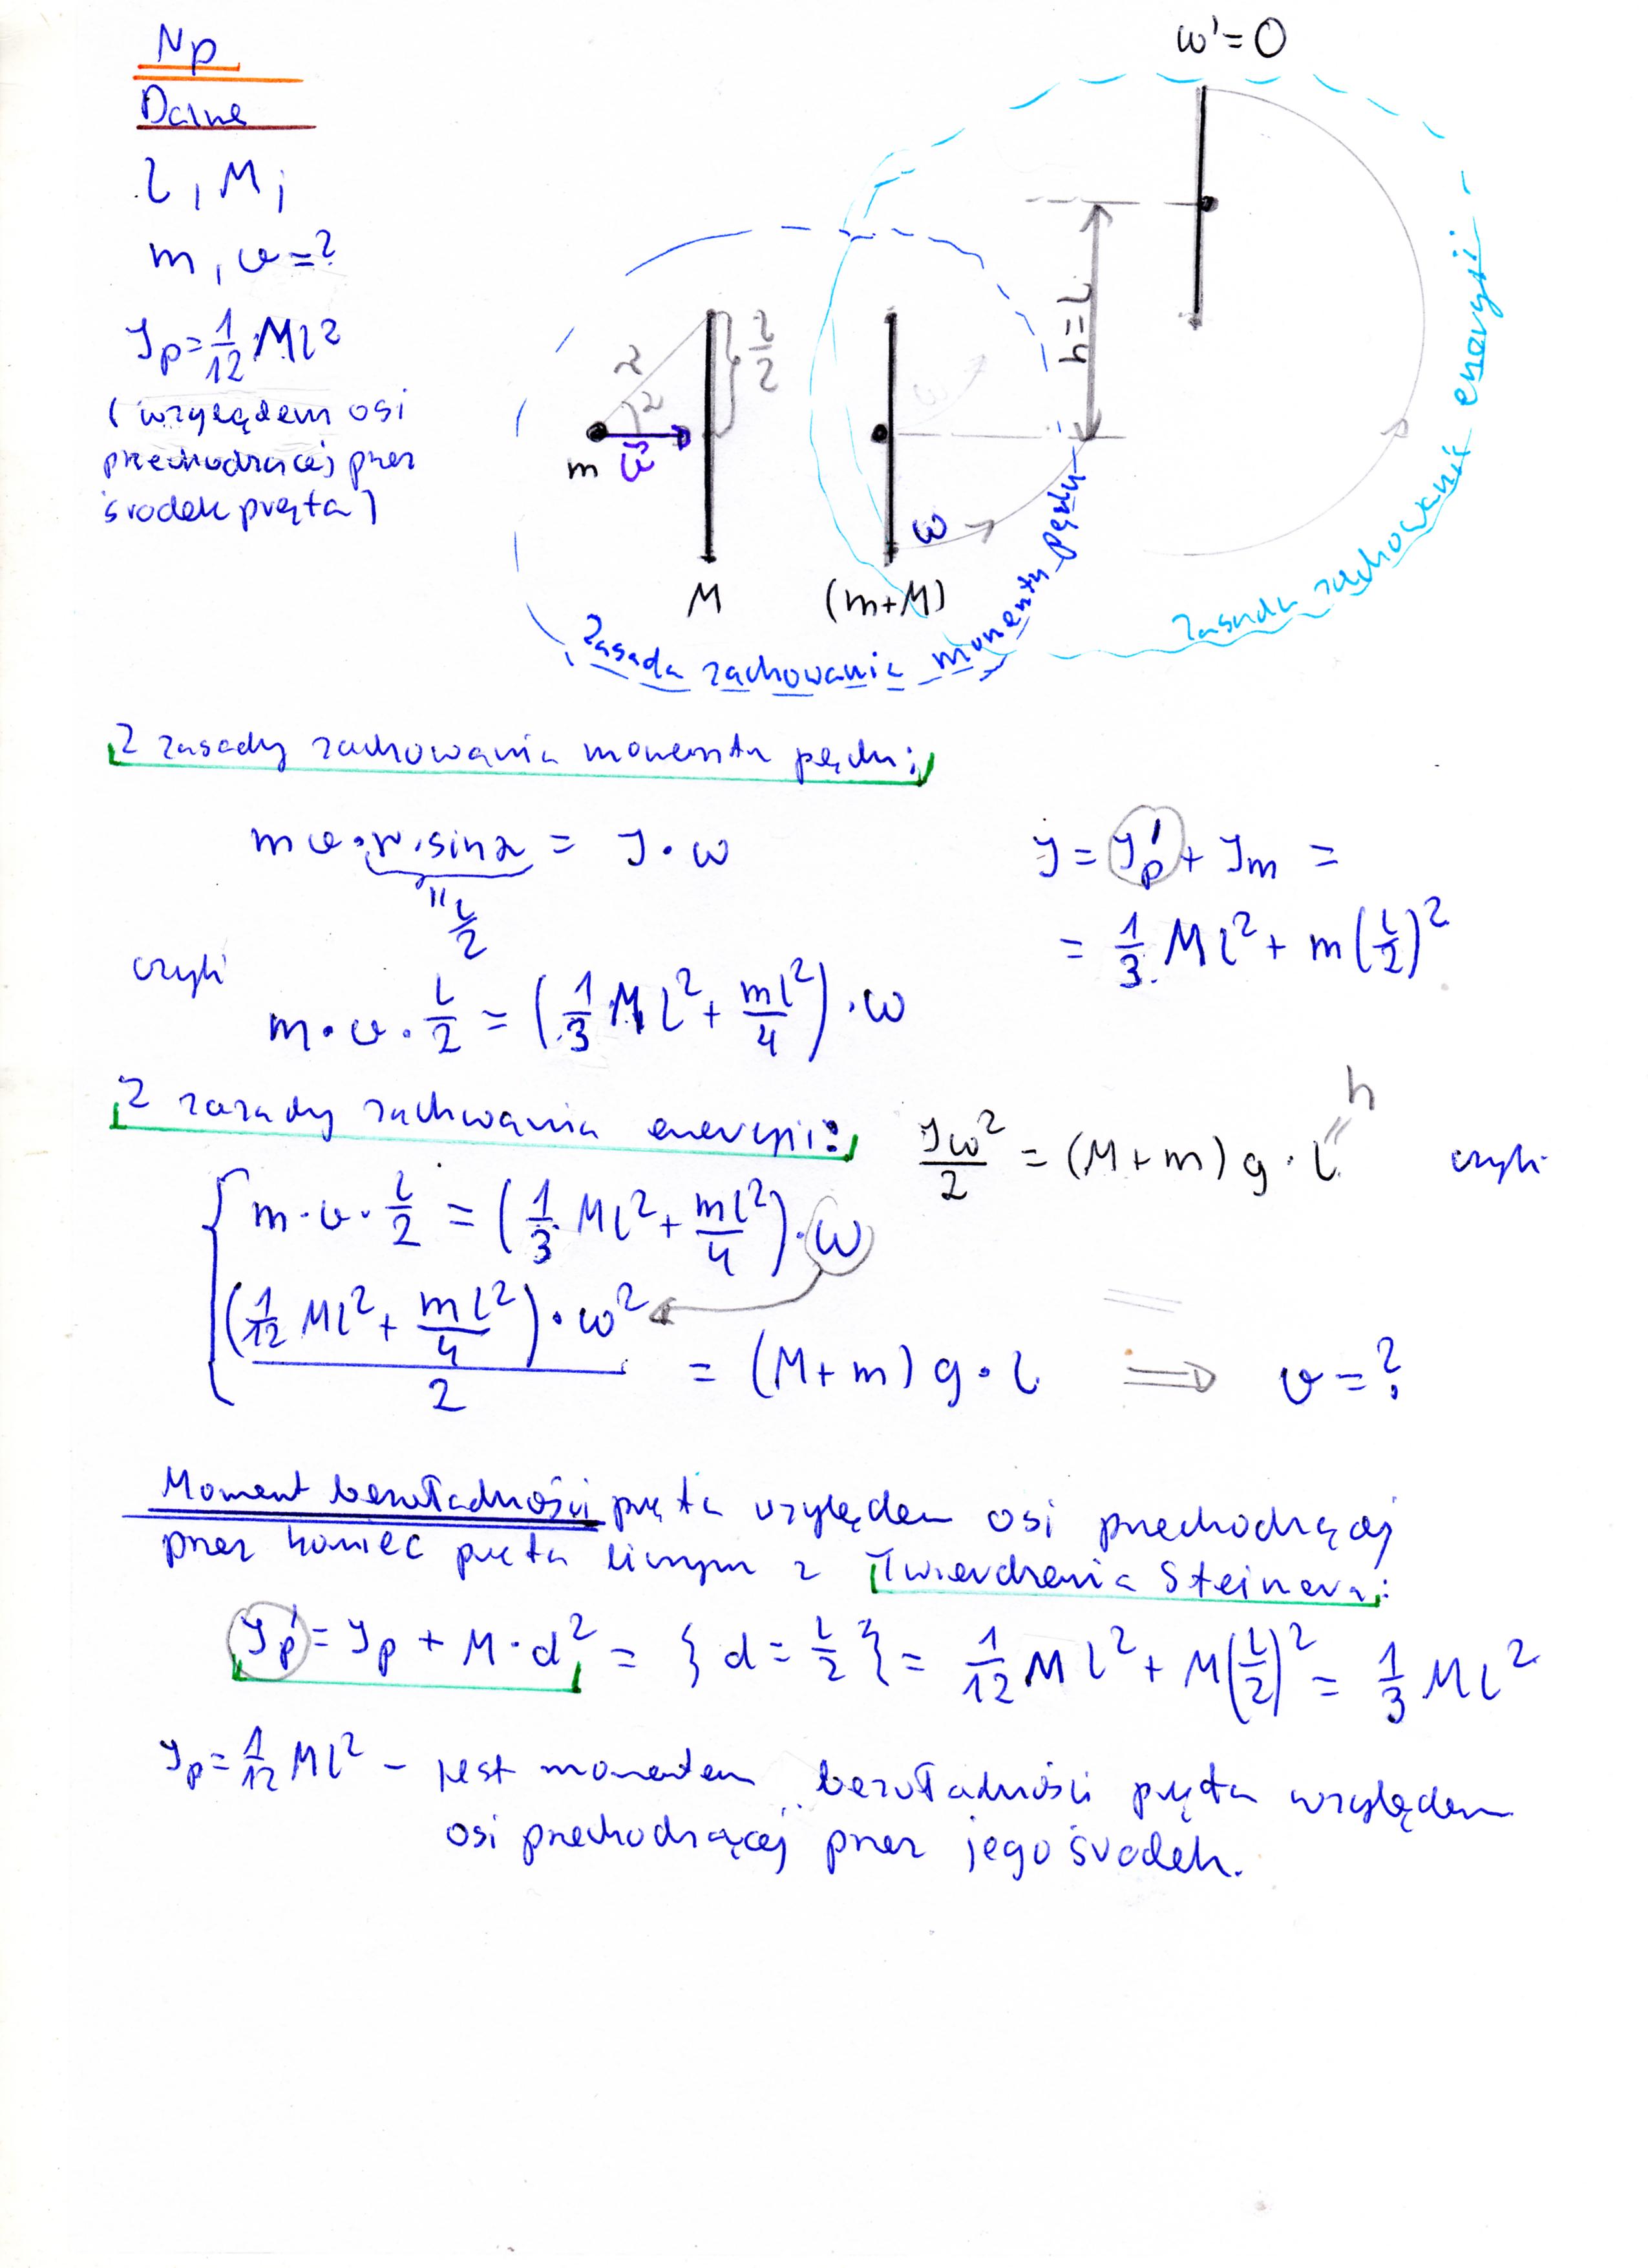 Np
Dane
l, M;
m, v=?
Jp=1/12 Ml²
(względem osi
przechodzącej przez
środek pręta)
ω'=0
h=l
r
α
l/2
m
v⃗
M
ω
(m+M)
Zasada zachowania momentu pędu
Zasada zachowania energii
Z zasady zachowania momentu pędu:
mv·r·sinα = J·ω
l/2
J = Jp' + Jm =
= 1/3 Ml² + m(l/2)²
czyli
m·v·l/2 = (1/3 Ml² + ml²/4)·ω
Z zasady zachwania energii:
Jω²/2 = (M+m)g·l
h
czyli
m·v·l/2 = (1/3 Ml² + ml²/4)·ω
(1/12 Ml² + ml²/4)·ω²/2 = (M+m)g·l ⟹ v=?
Moment bezwładności pręta względem osi przechodzącej
przez koniec pręta liczymy z Twierdzenia Steinera:
Jp' = Jp + M·d² = {d = l/2} = 1/12 Ml² + M(l/2)² = 1/3 Ml²
Jp = 1/12 Ml² – jest momentem bezwładności pręta względem
osi przechodzącej przez jego środek.